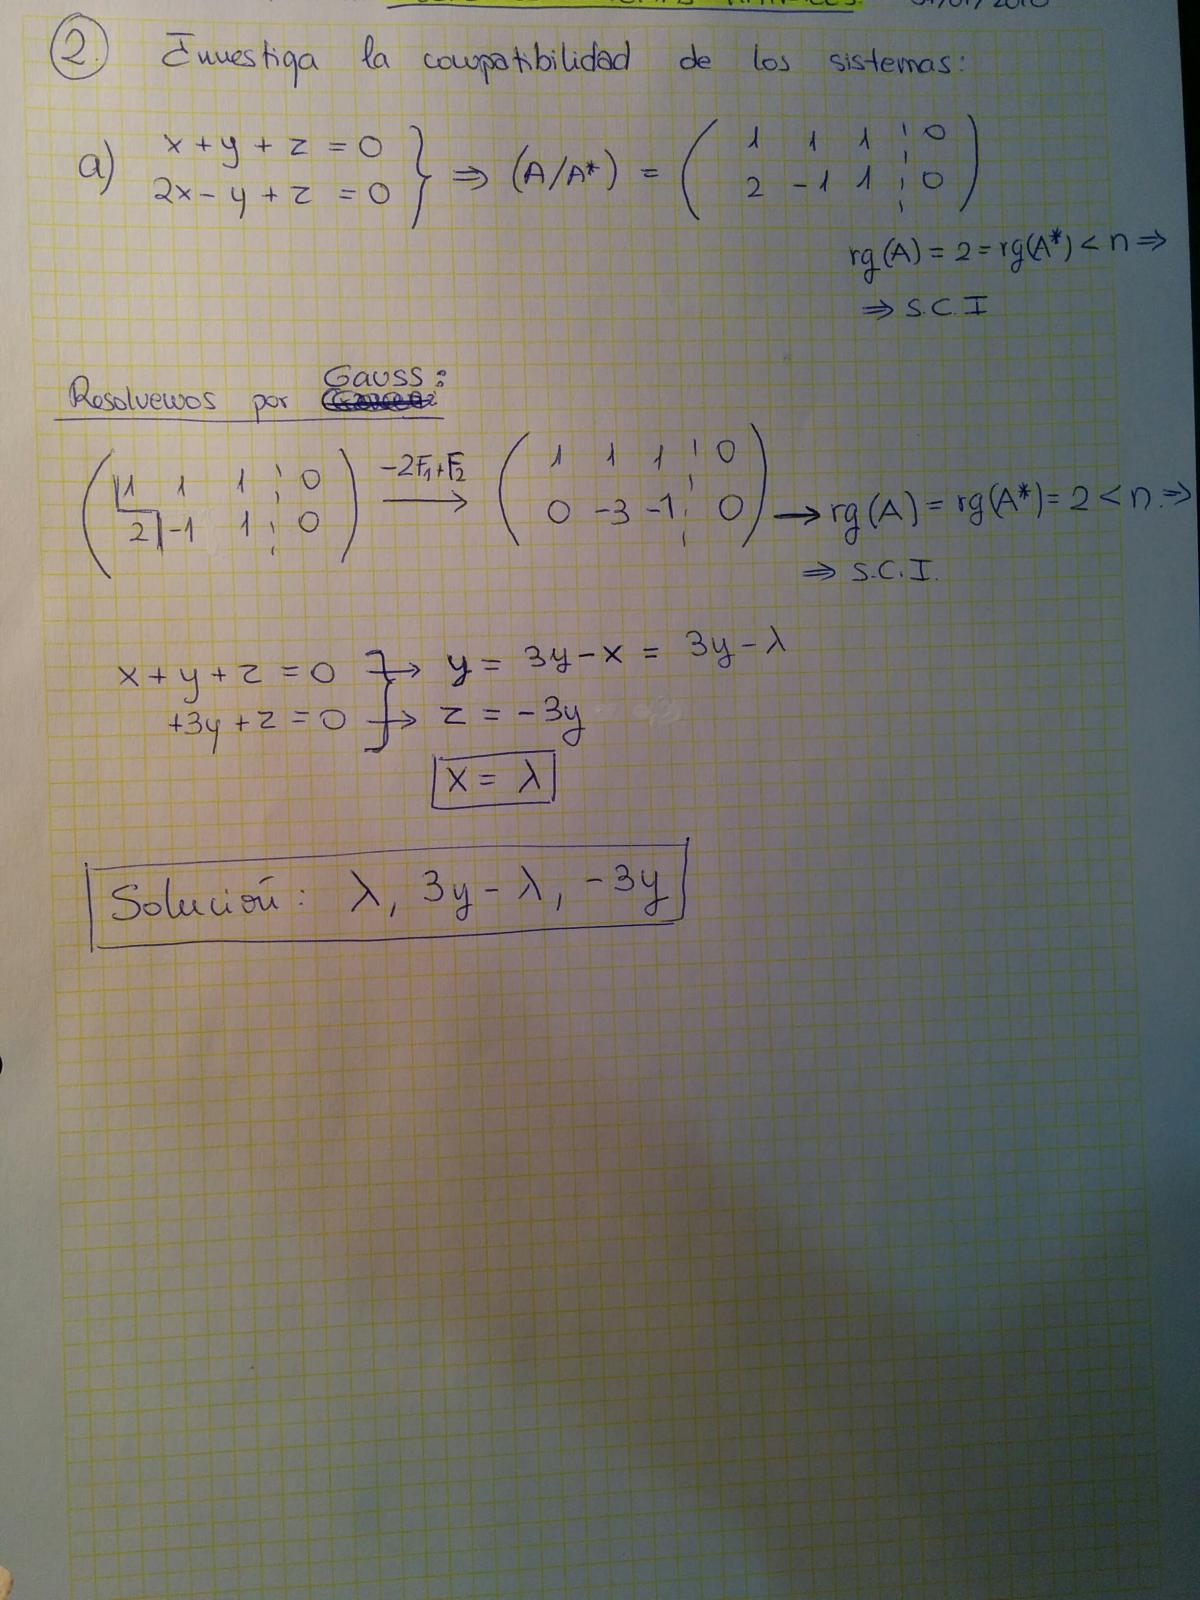 2. Investiga la compatibilidad de los sistemas:
a) x + y + z = 0
2x - y + z = 0 } ⇒ (A/A*) = ( 1 1 1 ¦ 0
2 -1 1 ¦ 0 )
rg(A) = 2 = rg(A*) < n ⇒
⇒ S.C.I
Resolvemos por Gauss:
( 1 1 1 ¦ 0
2 -1 1 ¦ 0 ) -2F₁+F₂ → ( 1 1 1 ¦ 0
0 -3 -1 ¦ 0 ) → rg(A) = rg(A*) = 2 < n ⇒
⇒ S.C.I.
x + y + z = 0 → y = 3y - x = 3y - λ
+3y + z = 0 → z = -3y
x = λ
Solución: λ, 3y - λ, -3y